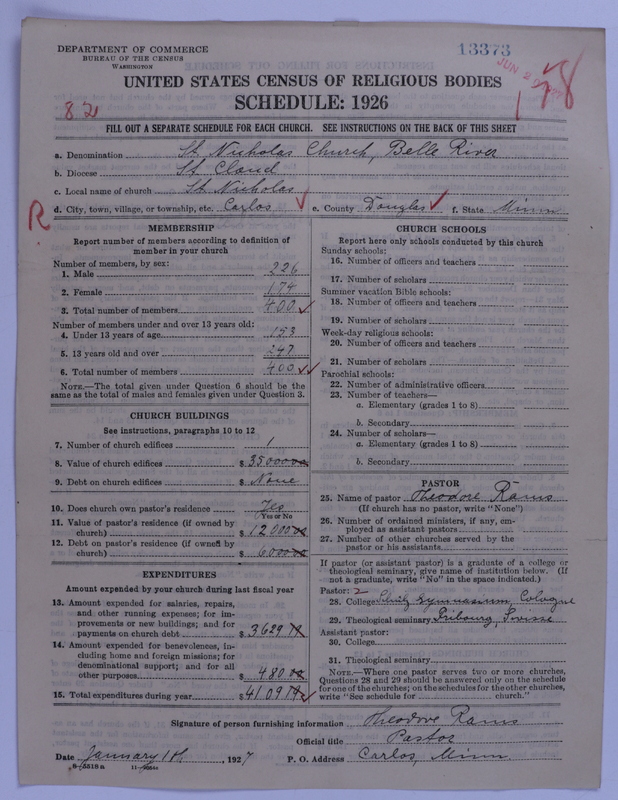 DEPARTMENT OF COMMERCE
BUREAU OF THE CENSUS
WASHINGTON
13373
JUN 20 1927
UNITED STATES CENSUS OF RELIGIOUS BODIES
SCHEDULE: 1926
82
FILL OUT A SEPARATE SCHEDULE FOR EACH CHURCH. SEE INSTRUCTIONS ON THE BACK OF THIS SHEET
a. Denomination St. Nicholas Church, Belle River
b. Diocese St. Cloud
c. Local name of church St. Nicholas
R d. City, town, village, or township, etc. Carlos e. County Douglas f. State Minn
MEMBERSHIP
Report number of members according to definition of
member in your church
Number of members, by sex:
1. Male 226
2. Female 174
3. Total number of members 400
Number of members under and over 13 years old:
4. Under 13 years of age 153
5. 13 years old and over 247
6. Total number of members 400
NOTE.—The total given under Question 6 should be the
same as the total of males and females given under Question 3.
CHURCH BUILDINGS
See instructions, paragraphs 10 to 12
7. Number of church edifices 1
8. Value of church edifices $ 35000 00
9. Debt on church edifices $ None
10. Does church own pastor's residence? Yes
(Yes or No)
11. Value of pastor's residence (if owned by
church) $ 12000 00
12. Debt on pastor's residence (if owned by
church) $ 6000 00
EXPENDITURES
Amount expended by your church during last fiscal year
13. Amount expended for salaries, repairs,
and other running expenses; for im-
provements or new buildings; and for
payments on church debt $ 3629
14. Amount expended for benevolences, in-
cluding home and foreign missions; for
denominational support; and for all
other purposes $ 480 00
15. Total expenditures during year $ 4109
CHURCH SCHOOLS
Report here only schools conducted by this church
Sunday schools:
16. Number of officers and teachers
17. Number of scholars
Summer vacation Bible schools:
18. Number of officers and teachers
19. Number of scholars
Week-day religious schools:
20. Number of officers and teachers
21. Number of scholars
Parochial schools:
22. Number of administrative officers
23. Number of teachers—
a. Elementary (grades 1 to 8)
b. Secondary
24. Number of scholars—
a. Elementary (grades 1 to 8)
b. Secondary
PASTOR
25. Name of pastor Theodore Rams
(If church has no pastor, write "None")
26. Number of ordained ministers, if any, em-
ployed as assistant pastors
27. Number of other churches served by the
pastor or his assistants
If pastor (or assistant pastor) is a graduate of a college or
theological seminary, give name of institution below. (If
not a graduate, write "No" in the space indicated.)
Pastor: 2
28. College gymnasium, Cologne
29. Theological seminary Fribourg, Swisse
Assistant pastor:
30. College
31. Theological seminary
NOTE.—Where one pastor serves two or more churches,
Questions 28 and 29 should be answered only on the schedule
for one of the churches; on the schedules for the other churches,
write "See schedule for church."
Signature of person furnishing information Theodore Rams
Official title Pastor
Date January 18, 1927 P. O. Address Carlos, Minn
8-5318a